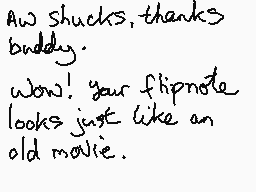 Aw shucks, thanks
buddy.
Wow! Your flipnote
looks just like an
old movie.